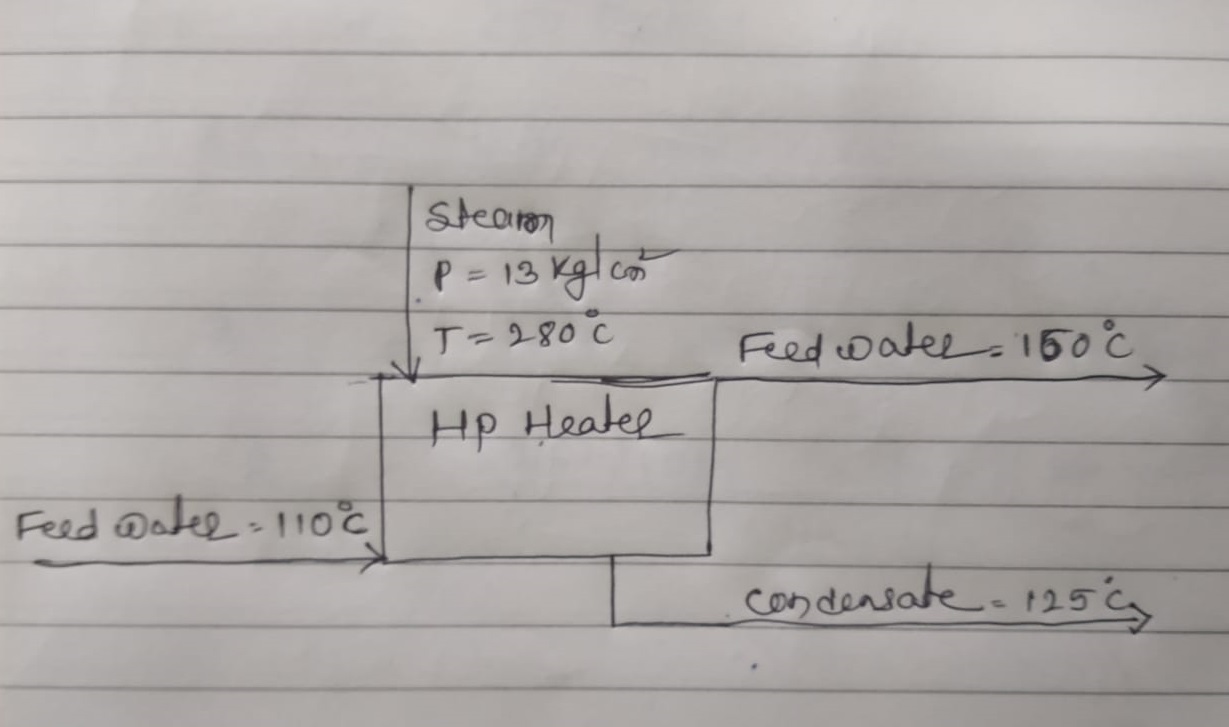 Steam
P = 13 kg/cm²
T = 280°C
Feed water = 160°C
HP Heater
Feed water = 110°C
Condensate = 125°C